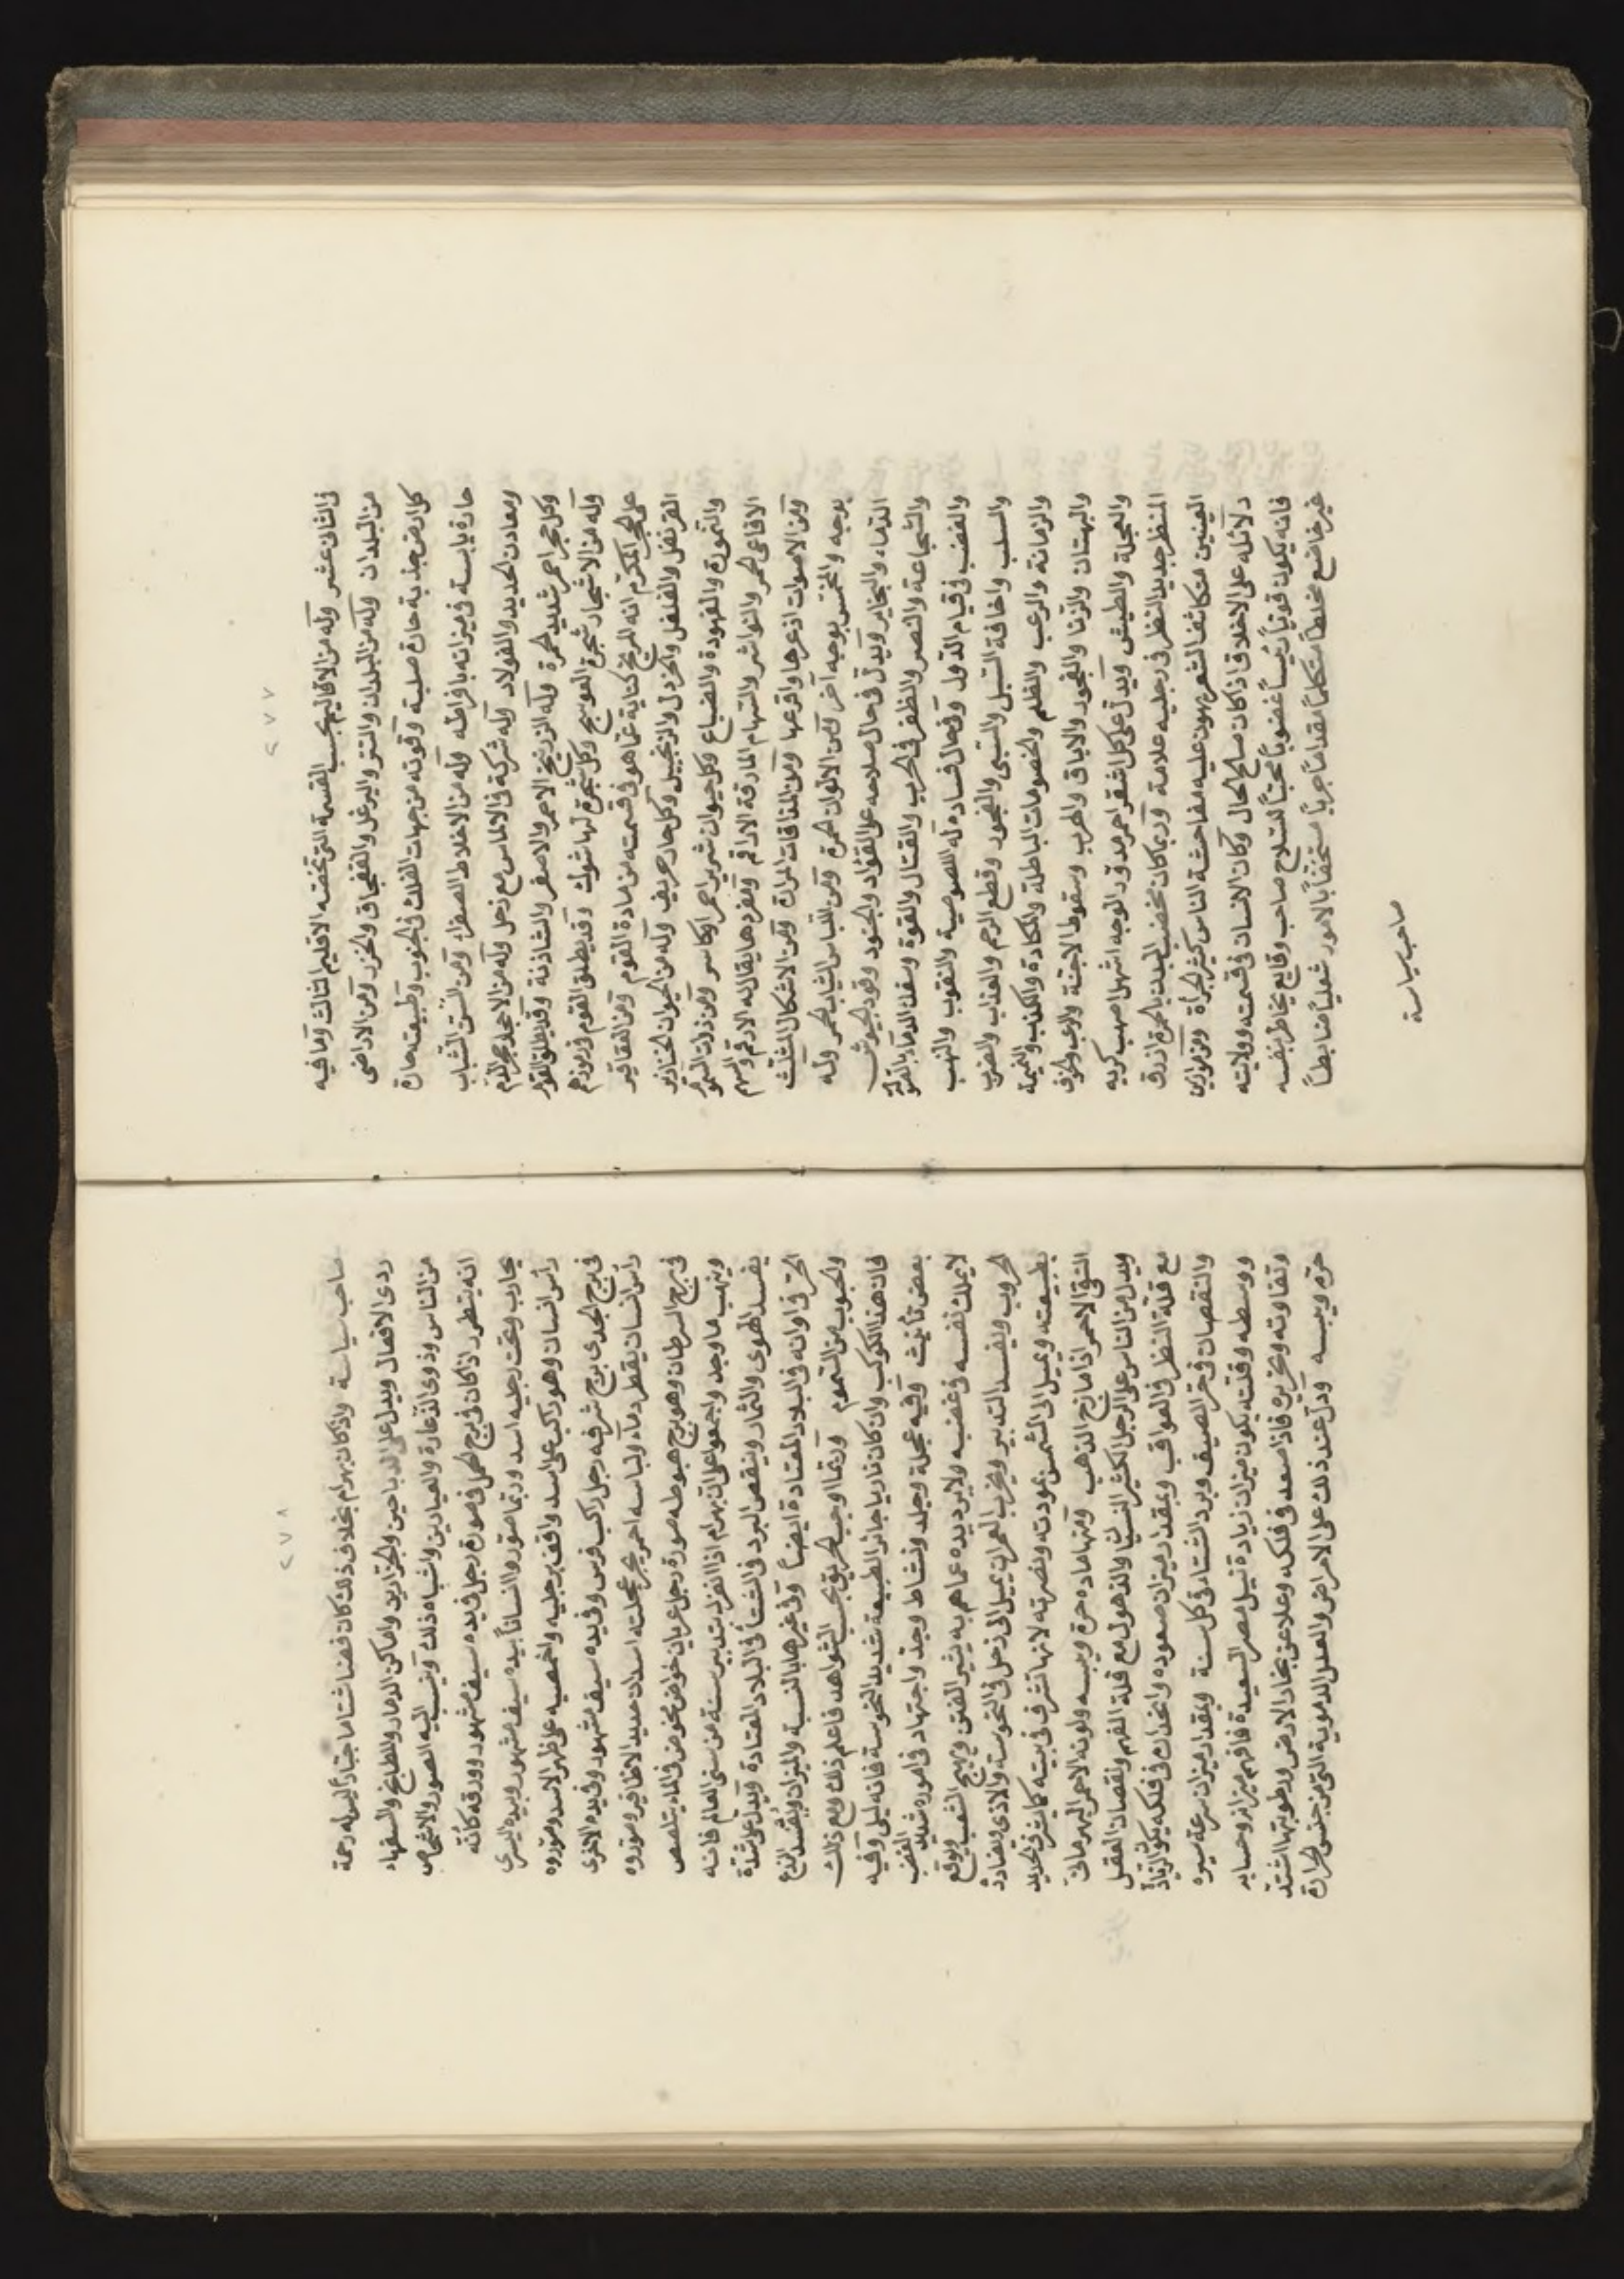 ٢٧٧
في الثاني عشر وله من الاقاليم بحسب القسمة التي تخصه الاقليم الثالث وما فيه
من البلدان وله من البلدان والتتر والبرغز والقفجاق والخزر ومن الاراضي
كل ارض جذبة حارة صلبة وقوته من جهات الفلك في الجنوب وطبيعته حارة
حارة يابسة في ميزانه بافراطه وله من الاخلاط الصفراء ومن السن الشباب
ومعادن الحديد والفولاد وله شركة في الالماس مع زحل وله من الاحجار حجر الدم
وكل حجر احمر شديد الحمرة وله الزرنيخ الاحمر والاصفر والشاذنة وقد يطلق القوم
وله من الاشجار شجرة العوسج وكل شجرة لها شوك وقد يطلق القوم في رموزهم
على الحجر المكرم انه المريخ كناية عما هو في قسمته من مادة القوم ومن العقاقير
القرنفل والفلفل والخردل والزنجبيل وكل حار حريف وله من الحيوان الخنازير
والنمورة والفهودة والضباع وكل حيوان شرير احمر او كاسر ومن ذوات السموم
الافاعي الحمر والنواشر والتهام المارقة الاراقم ومفردها يقال له الارقم والسهم
ومن الاصوات اذعرها واقرعها ومن المذاقات المرارة ومن الاشكال المثلث
بوجه والمخمس بوجه آخر ومن الالوان الحمرة ومن اللباس الثياب الحمر وله
الدماء والبخاير ويدل في حال صلاحه على القواد والجنود وقود الجيوش
والشجاعة والنصر والظفر في الحرب والقتال والقوة وسفك الدماء بالقوة
والغضب في قيام الدول وفي حال فساده له اللصوصية والنقوب والنهب
والسلب واخافة السبل والسبي والفجور وقطع الرحم والعذاب والضرب
والزمانة والرعب والظلم والخصومات الباطلة والمكادة والكذب والنميمة
والبهتان والزنا والفجور والاباق والهرب وسقوط الاجنة والرعب والخوف
والعجلة والطيش ويدل على كل اشقر احمر مدور الوجه اشهل اصهب كريه
المنظر حديد النظر في رجليه علامة وربما كان مخضب البدن بالحمرة ازرق
العينين متكاثف الشعر يهون عليه مفاحشة الناس كثير الجرأة ومن موازين
دلائله على الاخلاق اذا كان صالح الحال وكان الانسان في قسمته وولايته
فانه يكون قوياً رئيساً غضوباً محباً للسلاح صاحب وقايع يخاطر بنفسه
غير خاضع مخلطاً متكلماً مقداماً جرياً مستخفاً بالامور شغلياً ضابطاً
صاحب سياسة
٢٧٨
صاحب سياسة واذا كان بهرام بخلاف ذلك كان فضاً شتاماً جباراً ليس له رحمة
ردى الافعال ويدل على الذباحين والجزارين واماكن الدمار والمطابخ والسفهاء
من الناس وذوى الذعارة والعيارين واشباه ذلك وينسب اليه الصور والاشخاص
انه يتطور اذا كان في برج الحمل في صورة رجل في يده سيف مشهور وورقه كانه
يحارب وتحت رجليه اسد وربما صوروا انساناً بيده سيف مشهور وبيده اليسرى
راس انسان وهو راكب على اسد واقف برجليه واخمصيه على ظهر الاسد وصوروه
في برج الجدى برج شرفه رجل راكب فرس وفي يده سيف مشهور وفي يده الاخرى
راس انسان يقطر دماء ولباسه احمر يجر عجلته اسدان حديد الاظافير وصوروه
في برج السرطان وهو برج هبوطه صورة رجل عريان خواض يخوض في الماء يتلصص
وينهب ما وجد واجمعوا على ان بهرام اذا انفرد بتدبير سنة من سنى العالم فانه
يفسد الهوى والثمار وينقص البرد في الشتاء في البلاد المعتادة ويدل على شدة
الحر في اوانه في البلاد المعتادة ايضاً وفي غيرها بالنسبة والميزان ويفسد الزرع
والحبوب من السموم وربما اوجب الحريق بحسب الشواهد فاعلم ذلك ومع ذلك
فان هذا الكوكب وان كان نارياً جائر الطبيعة شديد النحوسة فانه ليلى وفيه
بعض تأنيث وفيه عجلة وجلد ونشاط وجد واجتهاد في اموره شديد الغضب
لا يملك نفسه في غضبه ولا يرد يده عما هم به يثير الفتن ويهيج الشغب ويوقع
الحروب ويفسد التدبير ويخرب العمران يميل الى زحل في النحوسة والاذى ويضادده
بطبيعته ويميل الى الشمس بمودته ونصرته لانها تشرف في بيته كما يشرف الحديد
النقى الاحمر اذا مازج الذهب ومنها ماده حره ويبسه ولونه الاحمر البهرمانى
ويدل من الناس على الرجل الكثير النسيان والذهول مع قلة الفهم ونقصان العقل
مع قلة النظر في العواقب وبمقدار ميزان صعوده وانحداره في فلكه يكون الزيادة
والنقصان في حر الصيف وبرد الشتاء في كل سنة وبمقدار ميزان سرعة سيره
ووسطه وقلته يكون ميزان زيادة نيل مصر السعيدة فافهم ميزانه وحسابه
وتفاوته وتحريره فاذا صعد في فلكه وعلا عن بخار الارض ورطوبتها اشتد
حره ويبسه ودل عند ذلك على الامراض والعلل الدموية التي من جنس الحرارة